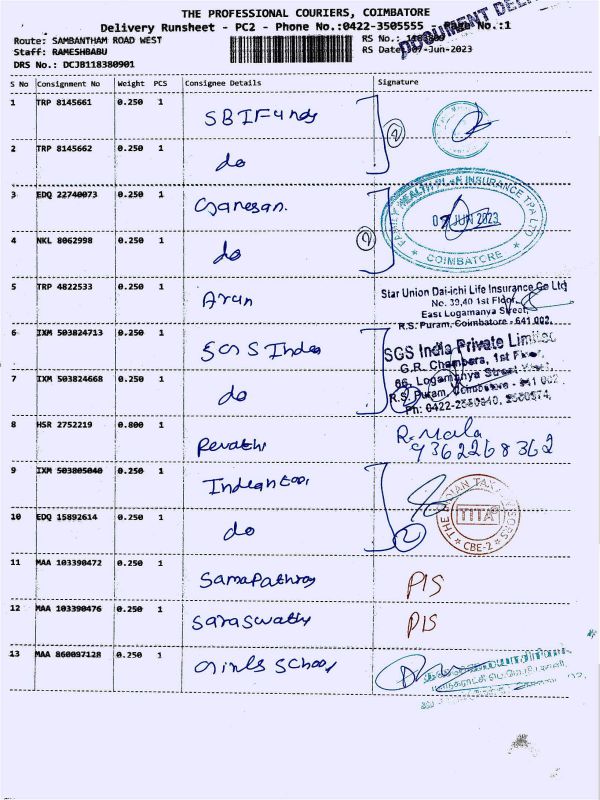 THE PROFESSIONAL COURIERS, COIMBATORE
Delivery Runsheet - PC2 - Phone No.:0422-3505555 - Page No.:1
DOCUMENT
Route: SAMBANTHAM ROAD WEST
RS No.:
Staff: RAMESHBABU
RS Date: 07-Jun-2023
DRS No.: DCJB118380901
S No Consignment No Weight PCS Consignee Details Signature
1 TRP 8145661 0.250 1 SBI Funds
2 TRP 8145662 0.250 1 do
2
3 EDQ 22740073 0.250 1 Ganesan.
FAMILY HEALTH PLAN INSURANCE TPA LTD
07 JUN 2023
COIMBATORE
4 NKL 8062998 0.250 1 do
2
5 TRP 4822533 0.250 1 Arun
Star Union Dai-ichi Life Insurance Co Ltd
No. 39,40 1st Floor,
East Logamanya Street,
R.S. Puram, Coimbatore - 641 002.
6 IXM 503824713 0.250 1 SGS India
SGS India Private Limited
G.R. Chambers, 1st Floor,
66, Logamanya Street West,
R.S. Puram, Coimbatore - 641 002
Ph: 0422-
7 IXM 503824668 0.250 1 do
2
8 HSR 2752219 0.800 1 Revathi
R. Mala
9362268362
9 IXM 503805040 0.250 1
10 EDQ 15892614 0.250 1 do
2
THE INDIAN TAX
TITA
CBE-2
11 MAA 103390472 0.250 1 PIS
12 MAA 103390476 0.250 1 Saraswathy PIS
13 MAA 860097128 0.250 1 Girls School